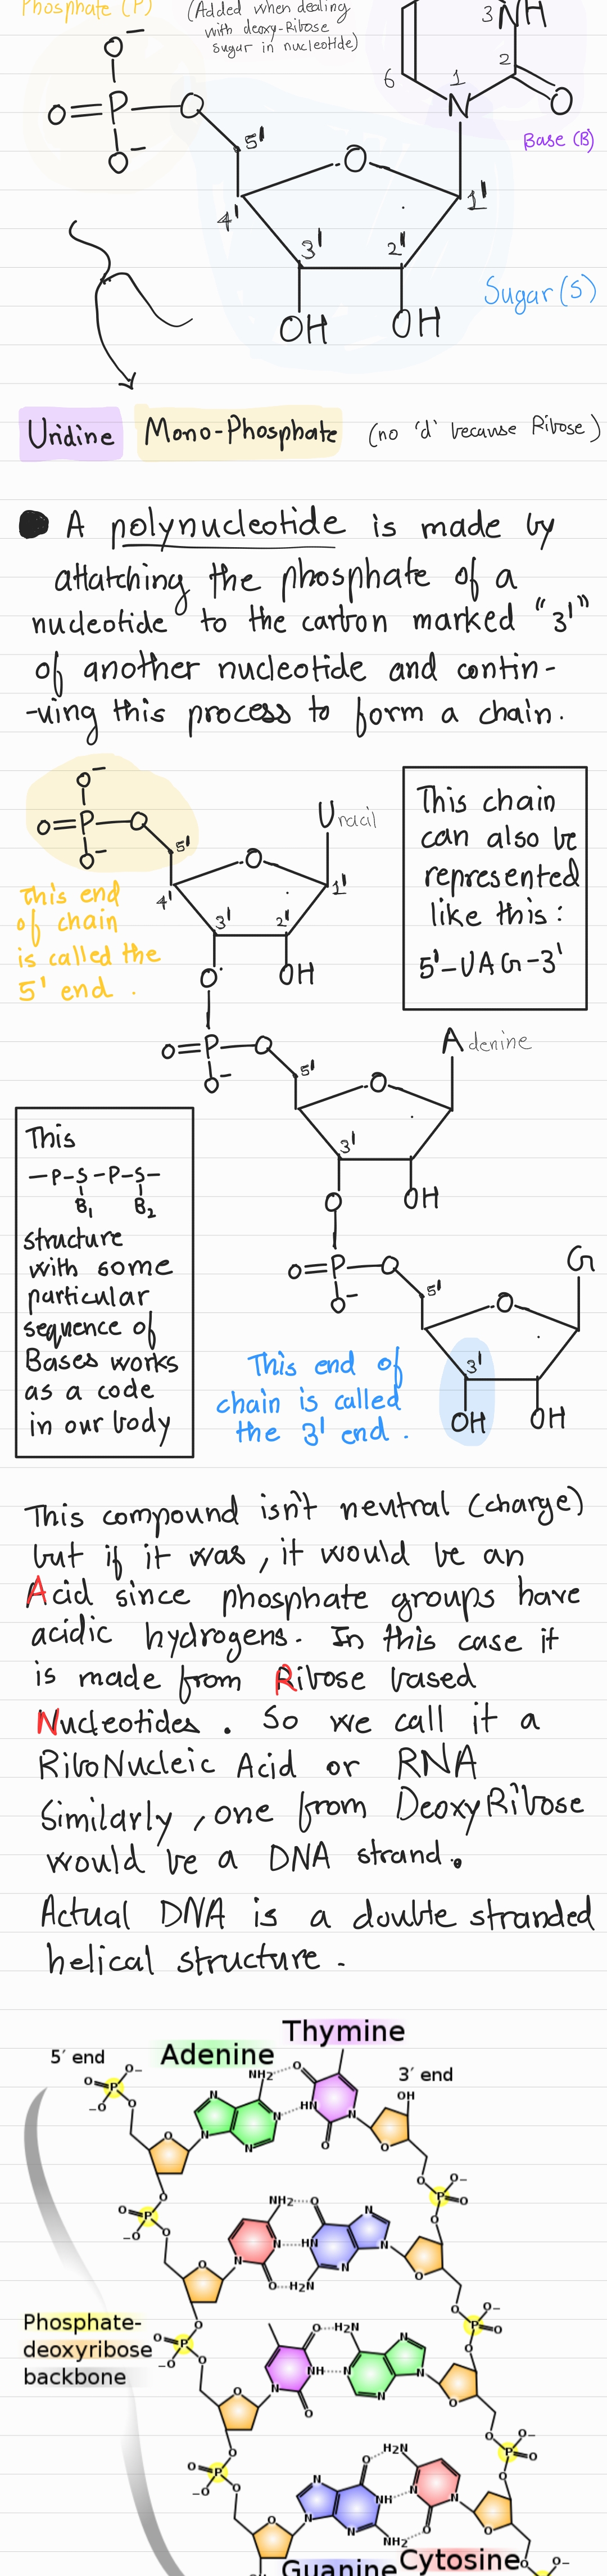 Phosphate (P)
(Added when dealing
with deoxy-Ribose
sugar in nucleotide)
3 NH
O⁻
6
1
2
N
O
O=P—O
O⁻
5'
Base (B)
O
4'
1'
3'
2'
Sugar (S)
OH
OH
Uridine Mono-Phosphate (no 'd' because Ribose)
A polynucleotide is made by
attatching the phosphate of a
nucleotide to the carbon marked "3'"
of another nucleotide and contin-
-uing this process to form a chain.
O⁻
O=P—O
O⁻
5'
Uracil
O
4'
1'
3'
2'
O
OH
This end
of chain
is called the
5' end.
This chain
can also be
represented
like this:
5'-UAG-3'
O=P—O
O⁻
5'
Adenine
O
3'
O
OH
This
-P-S-P-S-
B₁ B₂
structure
with some
particular
sequence of
Bases works
as a code
in our body
O=P—O
O⁻
5'
G
O
3'
OH
OH
This end of
chain is called
the 3' end.
This compound isn't neutral (charge)
but if it was, it would be an
Acid since phosphate groups have
acidic hydrogens. In this case it
is made from Ribose based
Nucleotides. So we call it a
RiboNucleic Acid or RNA
Similarly, one from DeoxyRibose
would be a DNA strand.
Actual DNA is a double stranded
helical structure.
Thymine
Adenine
5′ end
3′ end
Phosphate-
deoxyribose
backbone
Guanine
Cytosine